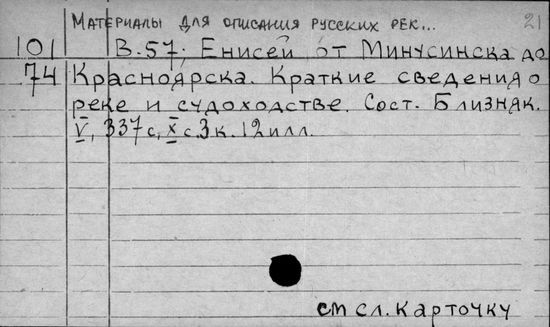 Материалы для описания русских рек... 21
101 В.57. Енисей от Минусинска до
74 Красноярска. Краткие сведения о
реке и судоходстве. Сост. Близняк.
V, 337 с, X с. 3 к. 12 илл.
см сл. Карточку